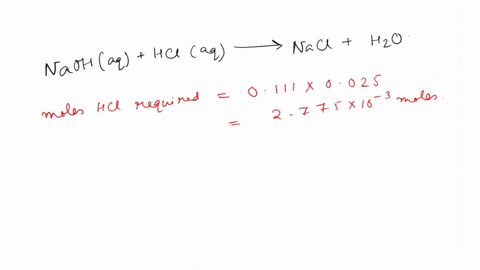 NaOH(aq) + HCl (aq) ⟶ NaCl + H₂O
moles HCl required = 0.111 × 0.025
= 2.775 × 10⁻³ moles.